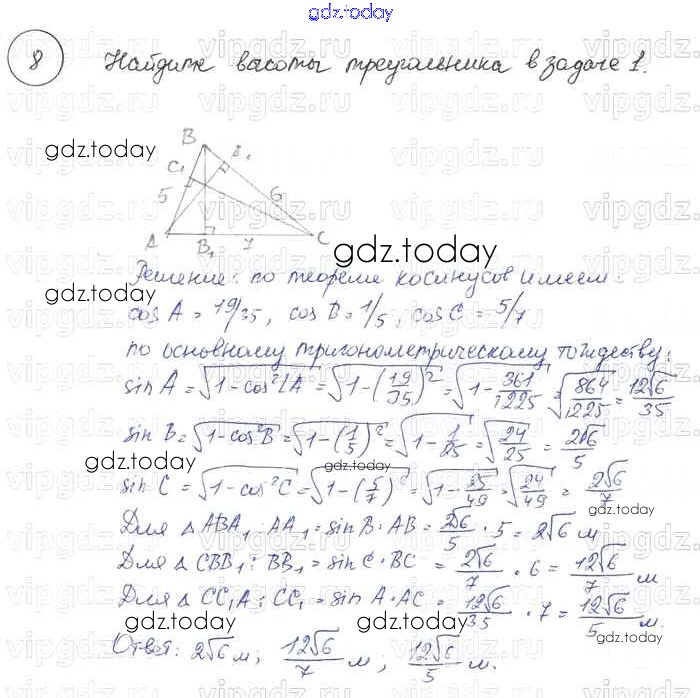 gdz.today
8 Найдите высоты треугольника в задаче 1.
gdz.today
B
A₁
C₁
5
6
A
B₁
7
C
gdz.today
Решение: по теореме косинусов имеем:
gdz.today
cos A = 19/35, cos B = 1/5, cos C = 5/7
по основному тригонометрическому тождеству:
sin A = √(1-cos²A) = √(1-(19/35)²) = √(1-361/1225) = √(864/1225) = 12√6/35
sin B = √(1-cos²B) = √(1-(1/5)²) = √(1-1/25) = √(24/25) = 2√6/5
gdz.today
sin C = √(1-cos²C) = √(1-(5/7)²) = √(1-25/49) = √(24/49) = 2√6/7
gdz.today
Для △ ABA₁: AA₁ = sin B · AB = 2√6/5 · 5 = 2√6 м
Для △ CBB₁: BB₁ = sin C · BC = 2√6/7 · 6 = 12√6/7 м
gdz.today
Для △ CC₁A: CC₁ = sin A · AC = 12√6/35 · 7 = 12√6/5 м.
gdz.today
Ответ: 2√6 м; 12√6/7 м; 12√6/5 м.
gdz.today